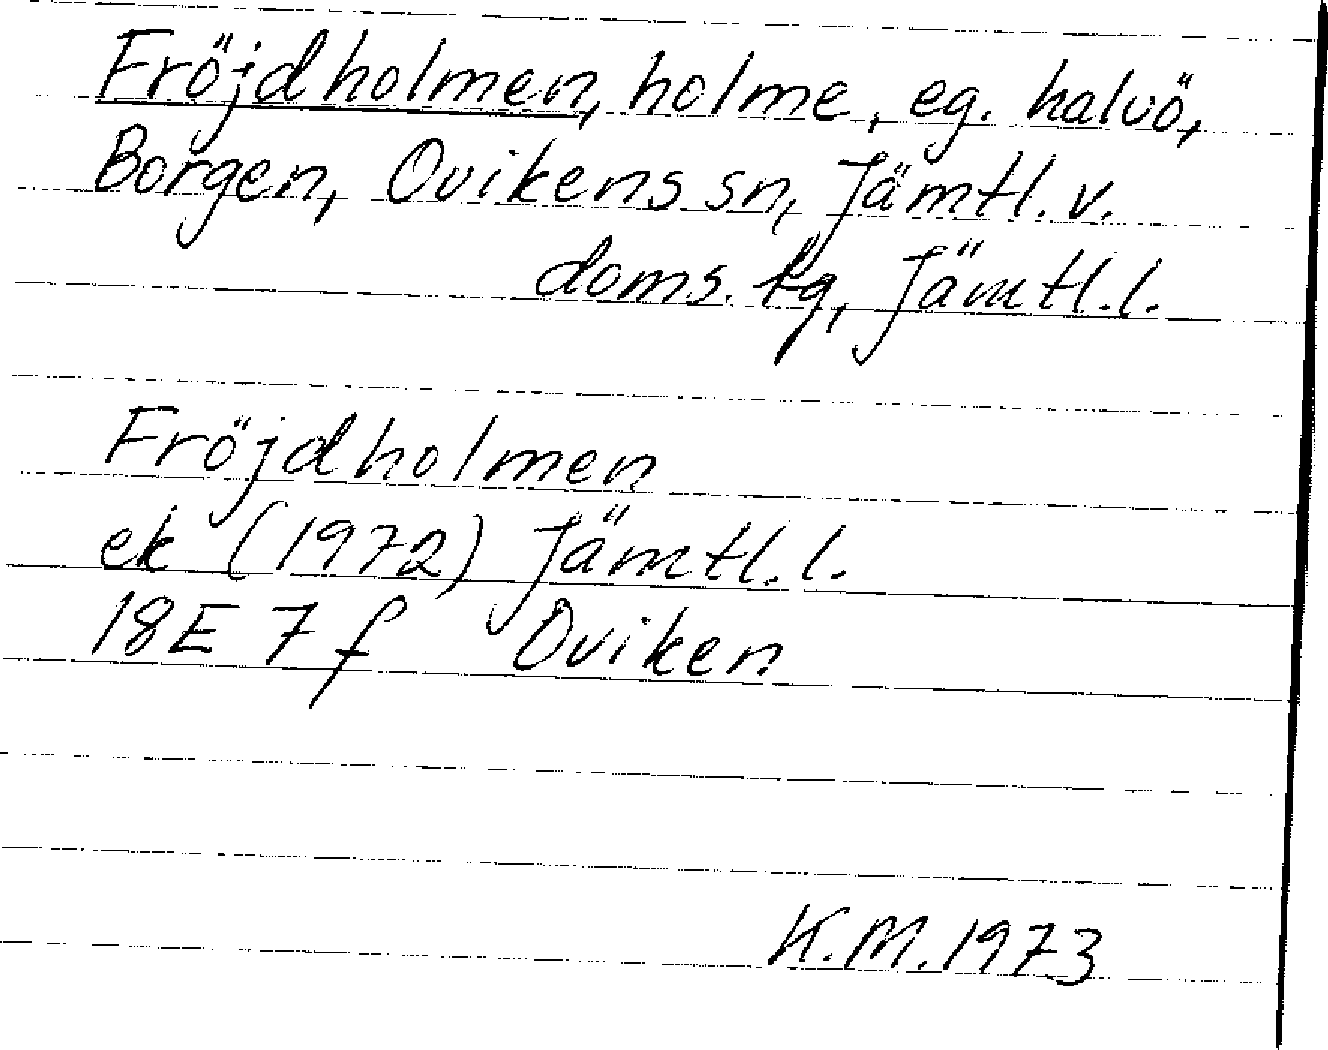 Fröjdholmen, holme, eg. halvö,
Borgen, Ovikens sn, Jämtl. v.
doms. tg, Jämtl. l.
Fröjdholmen
ek (1972) Jämtl. l.
18E 7f Oviken
K.M. 1973